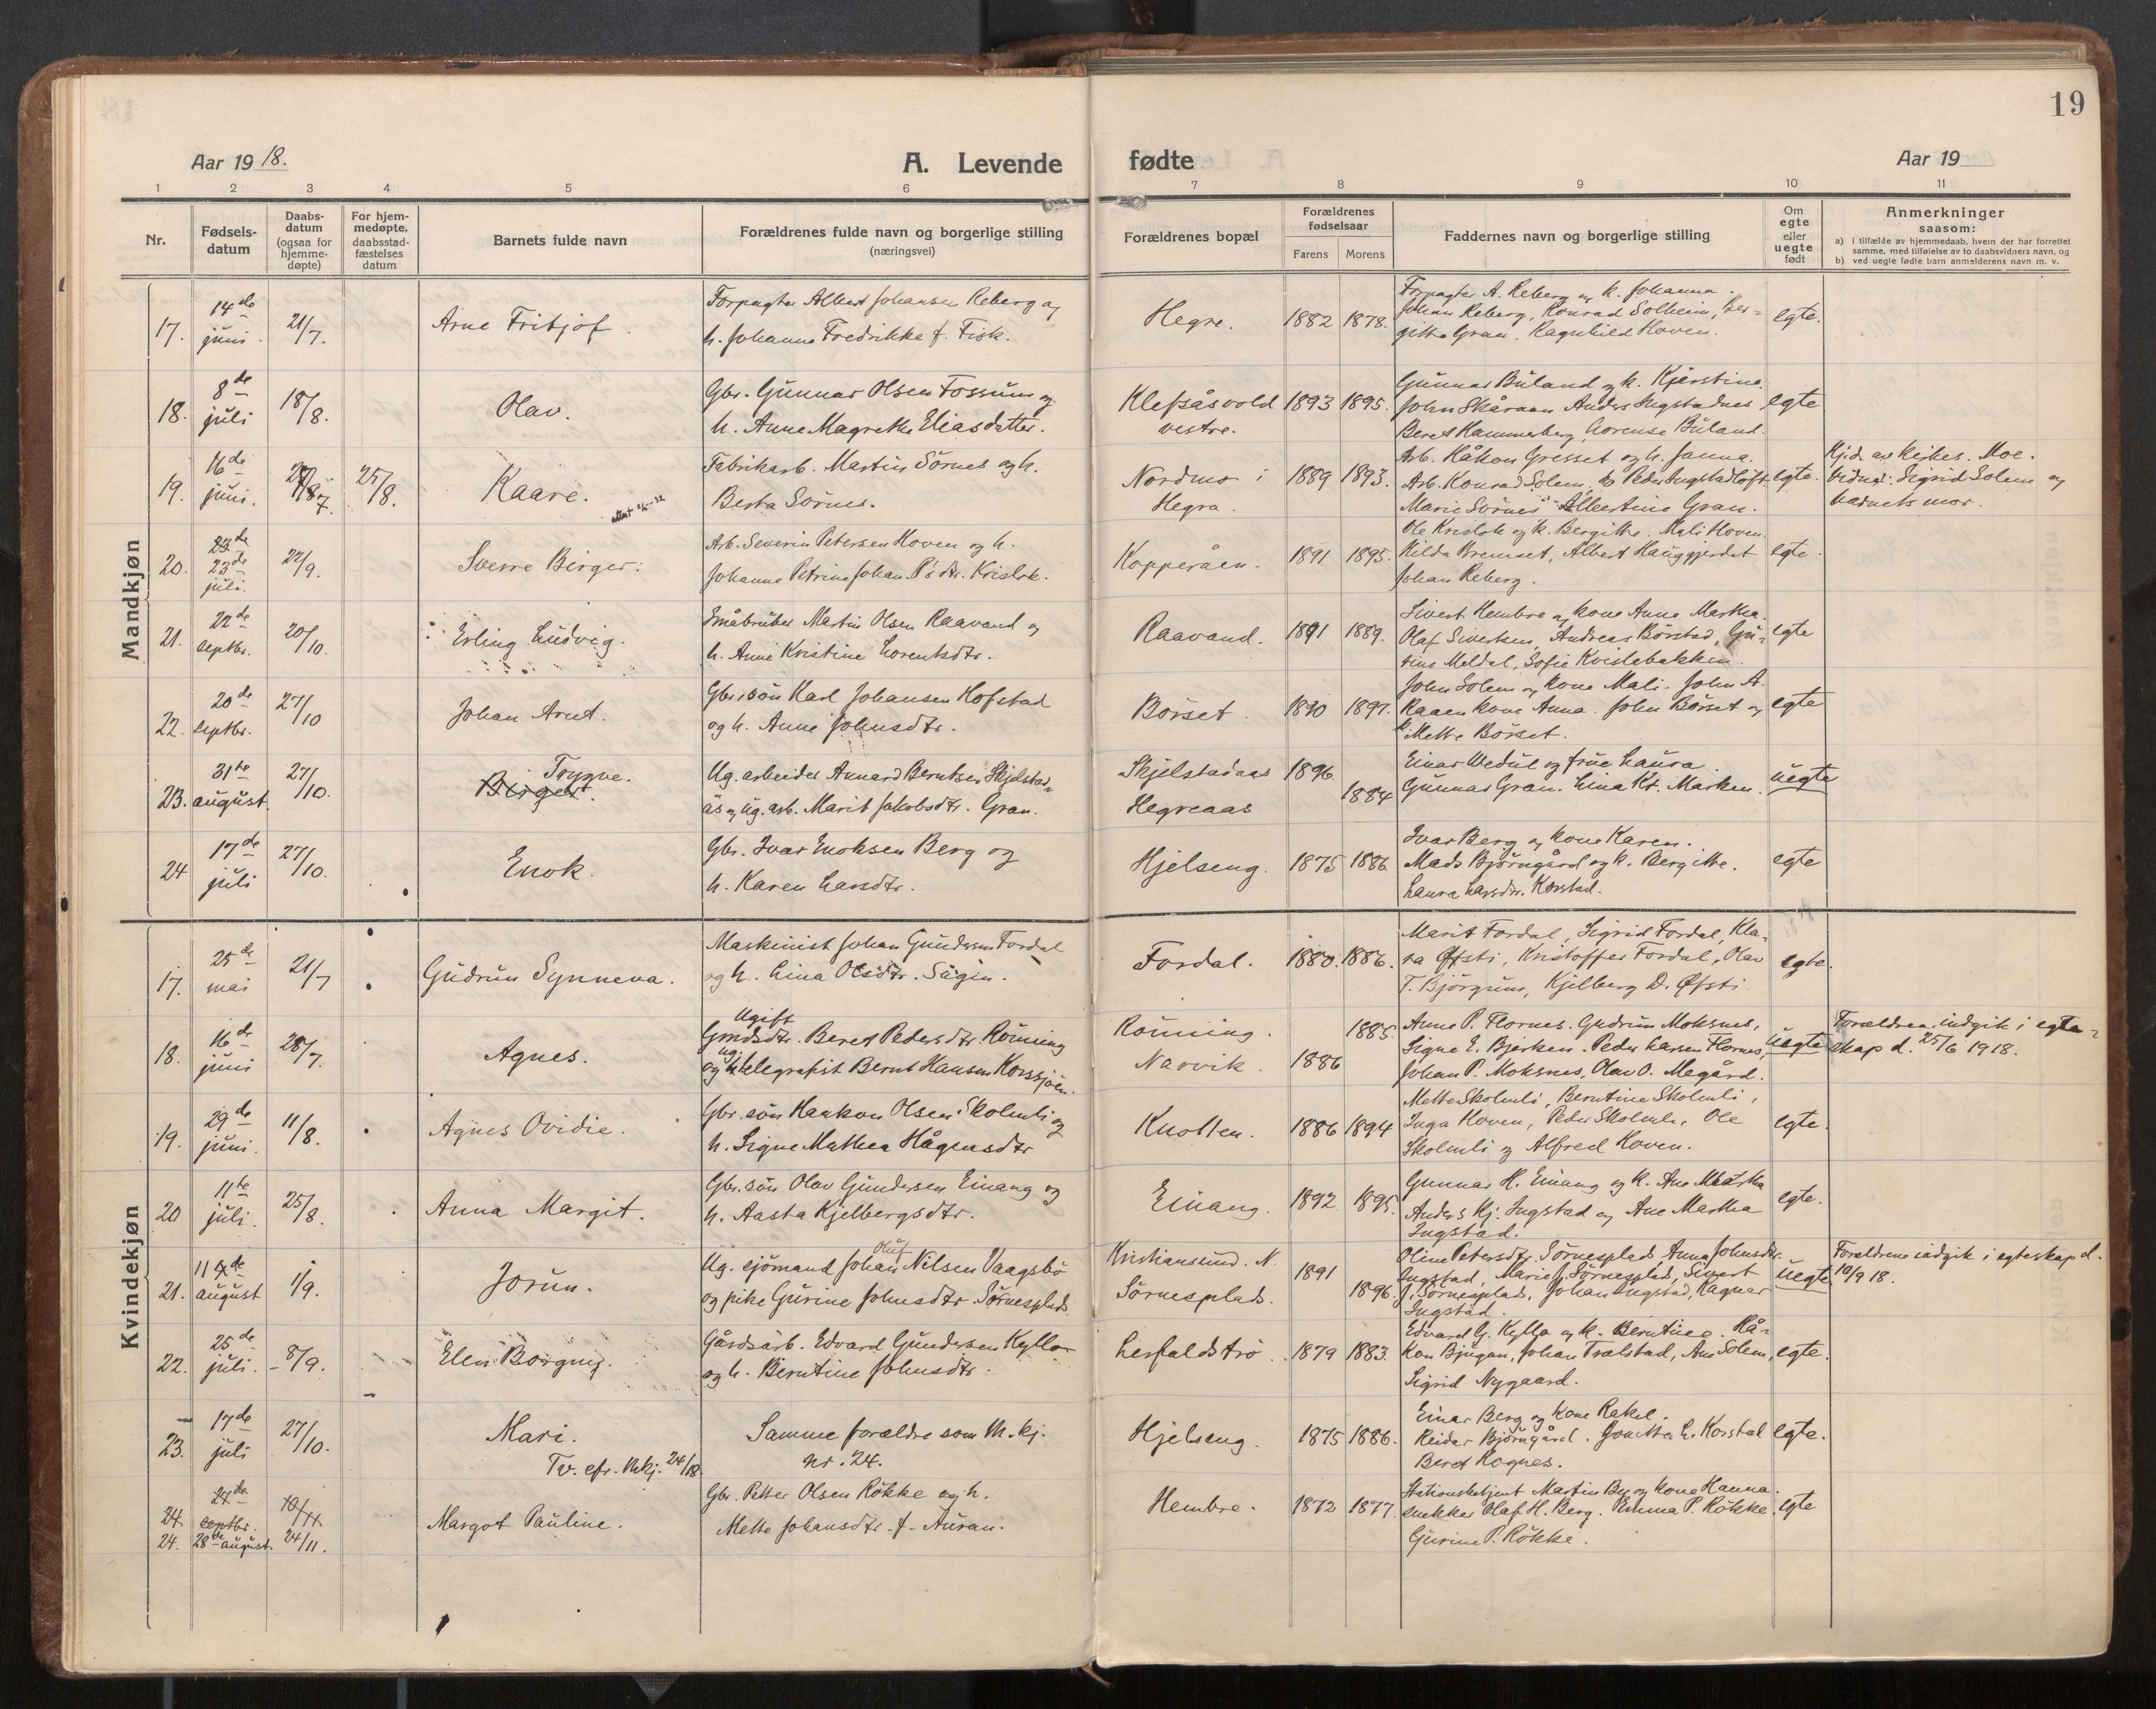 19
Aar 1918.
A. Levende fødte
Aar 19
1 2 3 4 5 6 7 8 9 10 11
Nr.
Fødsels-
datum
Daabs-
datum
(ogsaa for
hjemme-
døpte)
For hjem-
medøpte,
daabsstad-
fæstelses
datum
Barnets fulde navn
Forældrenes fulde navn og borgerlige stilling
(næringsvei)
Forældrenes bopæl
Forældrenes
fødselsaar
Farens Morens
Faddernes navn og borgerlige stilling
Om
egte
eller
uegte
født
Anmerkninger
saasom:
a) i tilfælde av hjemmedaab, hvem der har forrettet
samme, med tilføielse av to daabsvidners navn, og
b) ved uegte fødte barn anmelderens navn m. v.
Mandkjøn
17. 14de juni. 21/7. Arne Fritjof.
Forpagter Albert Johansen Reberg og
h. Johanna Fredrikke f. Fisk.
Hegre. 1882 1878.
Forpagter A. Reberg og k. Johanna.
Johan Reberg, Konrad Solheim, Ber-
gitte Gran. Ragnhild Hoven.
egte.
18. 8de juli 18/8. Olav.
Gbr. Gunnar Olsen Fossum og
h. Anne Magrethe Eliasdatter.
Klefsåsvold
vestre.
1893 1895.
Gunnar Buland og k. Kjerstine.
John Skåraan Anders Ingstadnes
Beret Hammerberg, Lorense Buland.
egte
19. 16de juni. 25/8. Kaare.
Fabrikarb. Martin Sörnes og h.
Berta Sörnes.
Nordmo i
Hegra.
1889 1893.
Arb. Håkon Gresset og h. Janna.
Arb. Konrad Solem, Peder Ingstadloft
Marie Sörnes Albertine Gran.
egte.
Hj.d. av kirkes. Moe.
Vidner: Sigrid Solem og
barnets mor.
20. 23de
23de
juli. 22/9. Sverre Birger.
Arb. Severin Petersen Hoven og h.
Johanne Petrine Johan Pedtr. Krislok.
Kopperåen. 1891 1895.
Ole Krislok og k. Bergitte. Mali Hoven.
Hilda Bremset, Albert Hauggjerdet
Johan Reberg.
egte.
21. 22de septbr. 20/10. Erling Ludvig.
Småbruker Martin Olsen Raavand og
h. Anne Kristine Lorentsdtr.
Raavand. 1891 1889.
Sivert Hembre og kone Anne Martha.
Olaf Sivertsen, Andreas Börstad, Gu-
rine Meldal, Sofie Kvislebakken.
egte
22. 20de septbr. 27/10 Johan Arnt.
Gbr. sön Karl Johansen Hofstad
og h. Anne Johnsdtr.
Börset. 1890 1897.
John Solem og kone Mali. John A.
Raaen kone Anna. John Börset og
k. Mette Börset.
egte
23. 31te august. 27/10. Trygve.
Birger.
Ug. arbeider Annard Berntsen Skjelstad-
ås og ug. arb. Marit Jakobsdtr. Gran.
Skjelstadaas
Hegreaas
1896.
1884
Einar Wedul og frue Laura.
Gunnar Gran. Lina Kr. Marken.
uegte
24 17de juli 27/10. Enok.
Gbr. Ivar Enoksen Berg og
h. Karen Larsdtr.
Hjelseng. 1875 1886
Ivar Berg og kone Karen.
Mads Bjørngård og k. Bergitte.
Laura Larsdtr. Korstad.
egte
Kvindekjøn
17. 25de mai 21/7 Gudrun Synneva.
Maskinist Johan Gundersen Fordal
og h. Lina Olsdtr. Sugin.
Fordal. 1880. 1886.
Marit Fordal, Sigrid Fordal, Kla-
ra Øfsti, Kristoffer Fordal, Olav
T. Björgum, Kjelberg D. Øfsti
egte.
18. 16de juni 28/7. Agnes.
Ugift
Grmdsdtr. Beret Pedersdtr Rönning
og ug. telegrafist Bernt Hansen Korssjöen.
Rönning.
Narvik.
1885.
1886
Anne P. Flornes. Gudrun Moksnes,
Signe E. Bjerken. Peder Larsen Flornes,
Johan P. Moksnes, Olav O. Megård.
uegte
Forældren. indgik i egte-
skap d. 25/6 1918.
19. 29de juni. 11/8. Agnes Ovidie.
Gbr. sön Haakon Olsen Skolmli og
h. Signe Mathea Hågensdtr
Knotten. 1886 1894
Mette Skolmli, Berntine Skolmli,
Inga Hoven, Peder Skolmli, Ole
Skolmli og Alfred Hoven.
egte.
20 11te juli. 25/8. Anna Margit.
Gbr. sön Olav Gundersen Einang og
h. Aasta Kjelbergsdtr.
Einang. 1892 1895.
Gunnar H. Einang og k. Ane Martha
Anders Kj. Ingstad og Ane Martha
Ingstad.
egte.
21. august 1/9. Jorun.
Oluf
Ug. sjömand Johan Nilsen Vaagsbö
og pike Gurine Johnsdtr. Sörnesplads
Kristiansund. N.
Sörnesplads.
1891
1896.
Oline Petersdtr. Sörnesplads, Anna Johnsdtr.
Ingstad, Marie J. Sörnesplads, Sivert
J. Sörnesplads, Johan Ingstad, Ragnar
Ingstad.
uegte.
Forældrene indgik i egteskap d.
10/9 18.
22. 25de juli. 8/9. Elen Borgny.
Gårdsarb. Edvard Gundersen Kyllo
og h. Berntine Johnsdtr.
Lerfaldströ. 1879 1883.
Edvard G. Kyllo og k. Berntine. Hå-
kon Bjugan, Johan Trælstad, Ane Solem,
Sigrid Nygaard.
egte.
23. 17de juli 27/10. Mari.
Tv. cfr. Mkj. 24/18.
Samme forældre som M.kj.
nr. 24.
Hjelseng. 1875 1886.
Einar Berg og kone Rakel.
Reidar Björngård. L. Korstad
Beret Rognes.
egte.
24. 27de septbr. 10/11
24. 28de august. 24/11. Margot Pauline.
Gbr. Petter Olsen Rökke og h.
Mette Johansdtr. f. Auran.
Hembre. 1872 1877.
Stationsbetjent Martin Berg og kone Hanna.
snekker Olaf H. Berg. Emma P. Rökke.
Gurine P. Rökke.
egte